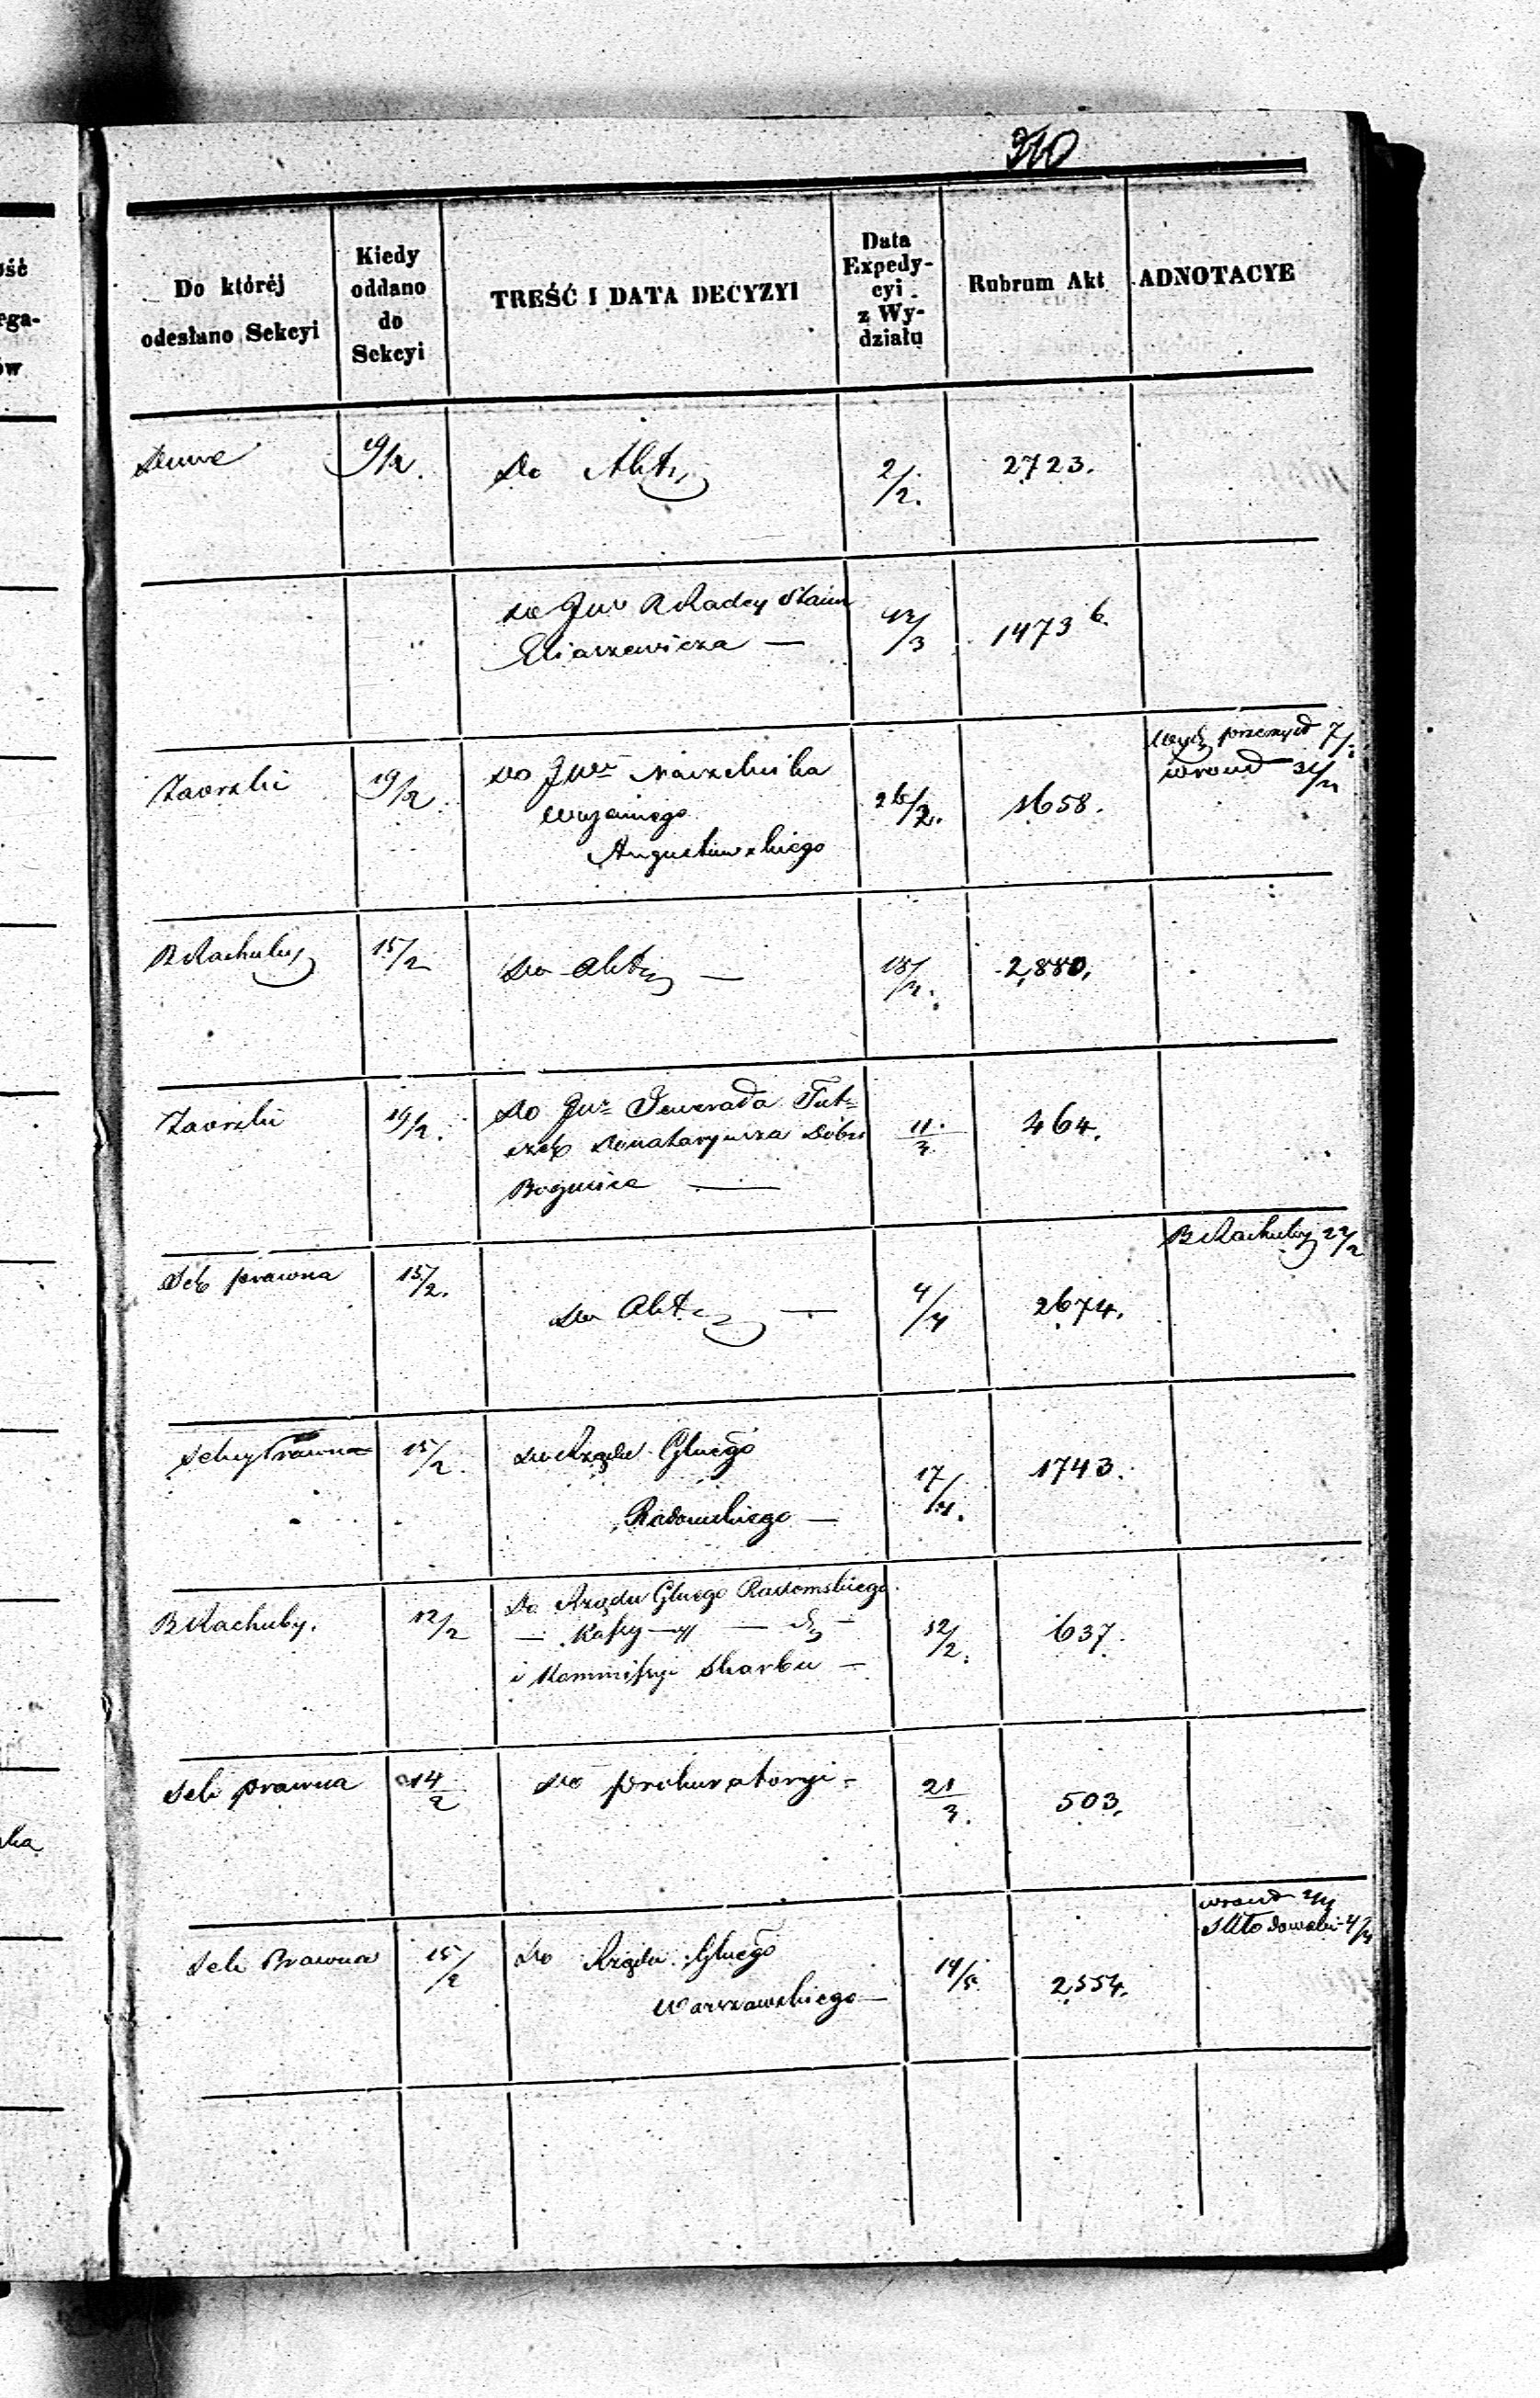 210
Do któréj
odesłano Sekcyi
Kiedy
oddano
do
Sekcyi
TREŚĆ I DATA DECYZYI
Data
Expedy-
cyi
z Wy-
działu
Rubrum Akt
ADNOTACYE
19/2.
Do Akt
2/2.
2723.
Do JW Radcy Stanu
Eliaszewicza —
12/3
1473 b.
Zaorski
19/2.
Do JW Naczelnika
Wojennego
Augustowskiego
26/2.
1658.
B Rachuby
15/2
Do Akt —
18/4.
2,880.
Zaorski
19/2.
Do JW Jenerała
Donataryusza Dóbr
11/3
464.
Sek prawna
15/2.
Do Akt —
4/4
2674.
B Rachuby 22/2
Sekcy Prawna
15/2.
Do Rządu Glnego
Radomskiego —
17/4.
1743.
B Rachuby.
12/2
Do Rządu Glnego Radomskiego
— Kassy — „ —
i Kommissyi Skarbu —
12/2.
637.
Sek prawna
14/2
Do prokuratoryi
21/3.
503.
Sek Prawna
15/2
Do Rządu Glnego
Warszawskiego —
14/5
2554.
ka
ość
ega-
ów